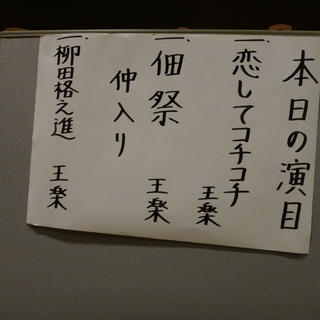 本日の演目
一、恋してコチコチ
王楽
一、佃祭
王楽
仲入り
一、柳田格之進
王楽